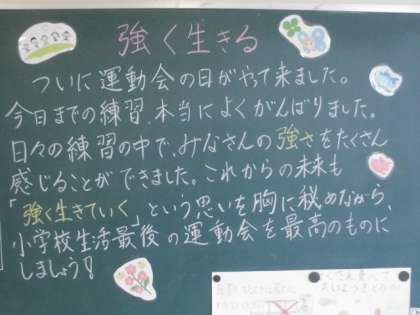 強く生きる
ついに運動会の日がやって来ました。
今日までの練習、本当によくがんばりました。
日々の練習の中で、みなさんの強さをたくさん
感じることができました。これからの未来も
「強く生きていく」という思いを胸に秘めながら、
小学校生活最後の運動会を最高のものに
しましょう!